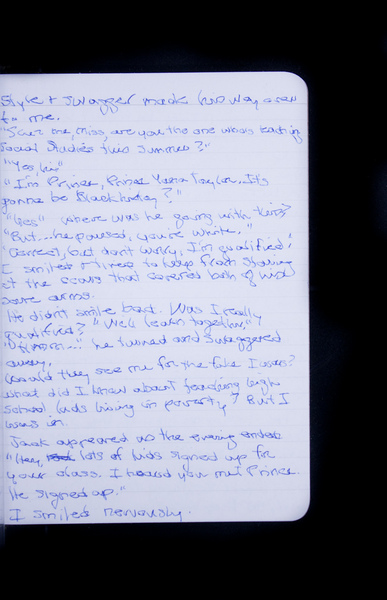 Style + swagger made his way over
to me.
"'Scuz me, Miss, are you the one who's teaching
Social Studies this summer?"
"Yes,
"I'm Prince, Prince Taylor. It's
gonna be Black history?"
"Yes" where was he going with this?
"But... he paused, you're white."
"Correct, but don't worry, I'm qualified,"
I smiled to keep from staring
at the scars that covered both of his
arms.
He didn't smile back. Was I really
qualified? "We'll learn together,"
"Hmmm..." he turned and swaggered
away,
Could they see me for the fake I was?
What did I know about teaching high
school kids living in poverty? But I
was in.
Jack appeared as the evening ended
"Hey, lots of kids signed up for
your class. I heard you met Prince.
He signed up."
I smiled nervously.